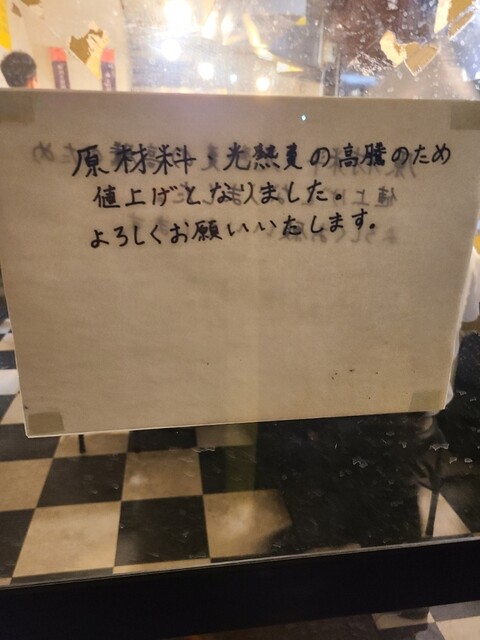 原材料・光熱費の高騰のため
値上げとなりました。
よろしくお願いいたします。